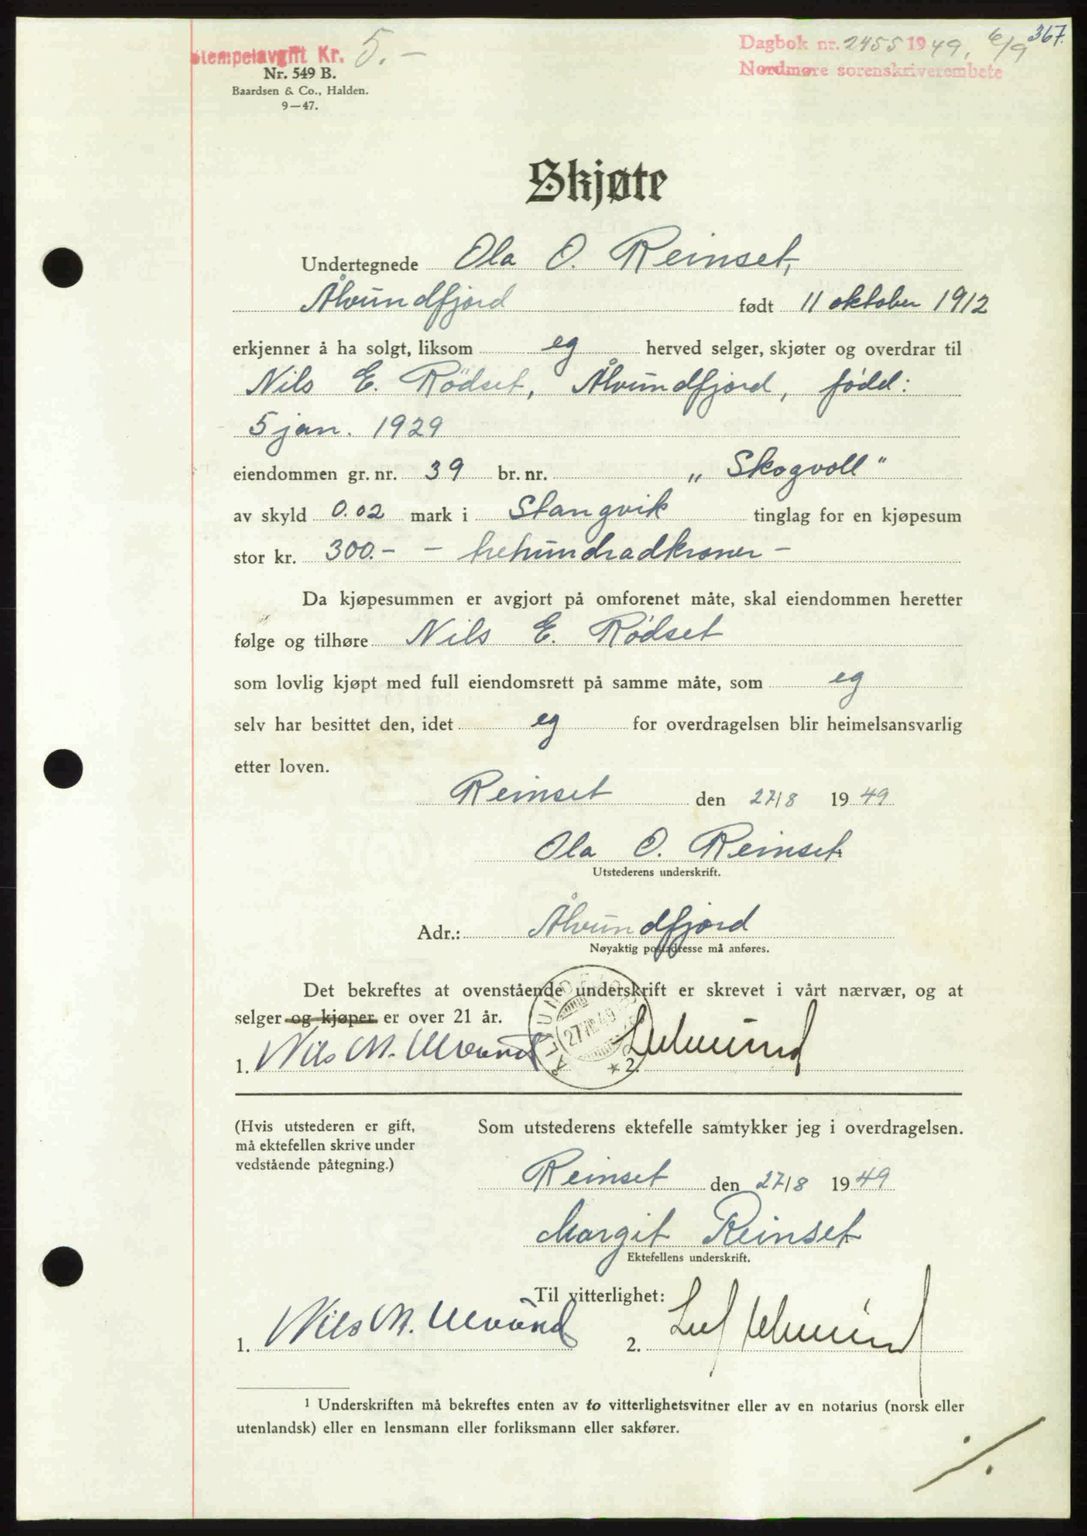 Stempelavgift Kr. 5.-
Nr. 549 B.
Baardsen & Co., Halden.
9—47.
Dagbok nr. 2455 1949. 6/9 367.
Nordmøre sorenskriverembete
Skjøte
Undertegnede Ola O. Reinset,
Ålvundfjord født 11 oktober 1912
erkjenner å ha solgt, liksom eg herved selger, skjøter og overdrar til
Nils E. Rødset, Ålvundfjord, fødd:
5 jan. 1929
eiendommen gr. nr. 39 br. nr. „Skogvoll"
av skyld 0.02 mark i Stangvik tinglag for en kjøpesum
stor kr. 300.- - trehundradkroner -
Da kjøpesummen er avgjort på omforenet måte, skal eiendommen heretter
følge og tilhøre Nils E. Rødset
som lovlig kjøpt med full eiendomsrett på samme måte, som eg
selv har besittet den, idet eg for overdragelsen blir heimelsansvarlig
etter loven.
Reinset den 27/8 1949
Ola O. Reinset
Utstederens underskrift.
Adr.: Ålvundfjord
Nøyaktig postadresse må anføres.
Det bekreftes at ovenstående underskrift er skrevet i vårt nærvær, og at
selger og kjøper er over 21 år.
1. Nils M. Ulvund 2.
(Hvis utstederen er gift,
må ektefellen skrive under
vedstående påtegning.)
Som utstederens ektefelle samtykker jeg i overdragelsen.
Reinset den 27/8 1949
Margit Reinset
Ektefellens underskrift.
Til vitterlighet:
1. Nils M. Ulvund 2.
1 Underskriften må bekreftes enten av to vitterlighetsvitner eller av en notarius (norsk eller
utenlandsk) eller en lensmann eller forliksmann eller sakfører.